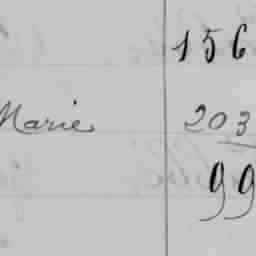 156
Marie 203
99